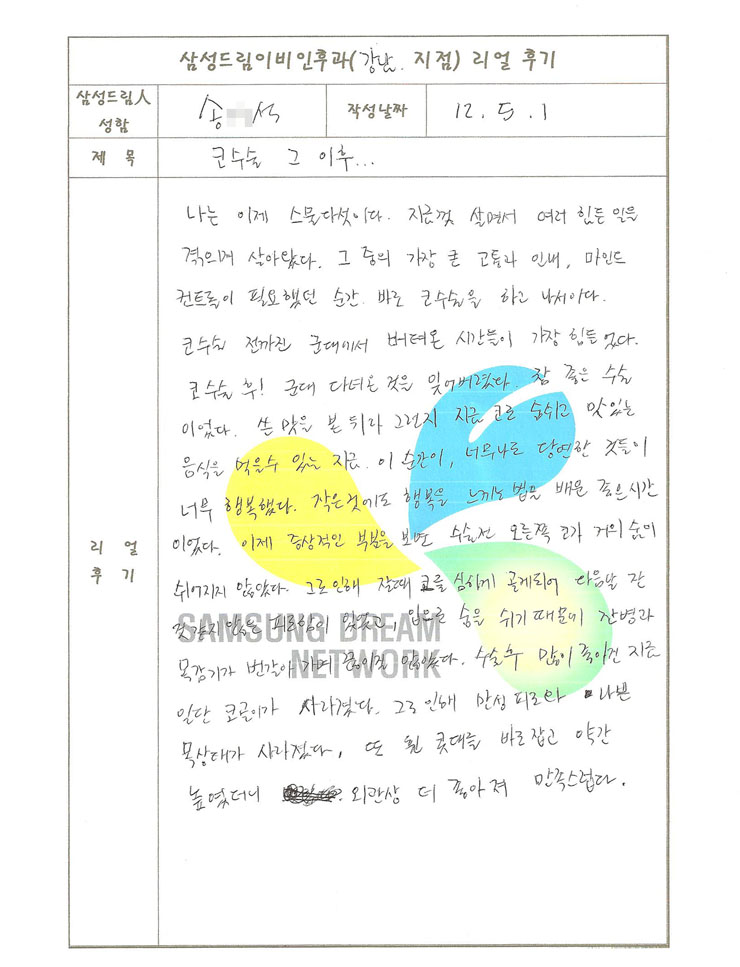 삼성드림이비인후과(강남. 지점) 리얼 후기
삼성드림人 성함
송 석
작성날짜
12. 5. 1
제 목
코수술 그 이후...
리 얼 후 기
나는 이제 스물다섯이다. 지금껏 살면서 여러 힘든 일을
겪으며 살아왔다. 그 중의 가장 큰 고통과 인내, 마인드
컨트롤이 필요했던 순간. 바로 코수술을 하고 나서이다.
코수술 전까진 군대에서 버텨온 시간들이 가장 힘들었다.
코수술 후! 군대 다녀온것을 잊어버렸다. 참 좋은 수술
이었다. 쓴 맛을 본 뒤라 그런지 지금 코로 숨쉬고 맛있는
음식을 먹을수 있는 지금. 이 순간이, 너무나도 당연한 것들이
너무 행복했다. 작은것에도 행복을 느끼는 법을 배운 좋은시간
이었다. 이제 증상적인 부분을 보면 수술전 오른쪽 코가 거의 숨이
쉬어지지 않았다. 그로인해 잘때 코를 심하게 골게되어 다음날 잔
것같지않은 피로함이 있었고, 입으로 숨을 쉬기 때문에 잔병과
목감기가 번갈아 가며 끊이질 않았다. 수술후 많이 좋아진 지금
일단 코골이가 사라졌다. 그로인해 만성피로와 나쁜
목상태가 사라졌다, 또 휜 콧대를 바로잡고 약간
높였더니 외관상 더 좋아져 만족스럽다.
SAMSUNG DREAM
NETWORK